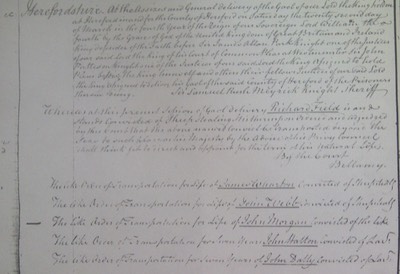 Herefordshire. At the Session and General Delivery of the Gaol of our Lord the King holden
at Hereford in and for the County of Hereford on Saturday the twenty second day
of March in the fourth Year of the Reign of our Sovereign Lord William the
Fourth by the Grace of God of the United Kingdom of Great Britain and Ireland
King Defender of the Faith before Sir James Allan Park Knight one of the Justices
of our said Lord the King of his Court of Common Pleas at Westminster Sir John
Knight one of the Justices of our said Lord the King assigned to hold
Pleas before the King himself and others their fellows Justices of our said Lord
the King assigned to deliver his Gaol of his said County of Hereford of the Prisoners
therein being.
Sir Samuel Rush Meyrick Knight Sheriff
Whereas at this present Session of Gaol delivery Richard Field is and
Stands convicted of Sheep Stealing It is thereupon ordered and adjudged
by this Court that he be transported beyond the
Seas
shall think fit to direct and appoint for the term of his Natural Life
By the Court
Bellamy
The like Order of Transportation for Life of James convicted of Sheep Stealg
The like Order of Transportation for Life of John Webb convicted of
The like Order of Transportation for Life of John Morgan convicted of the like
The like Order of Transportation for Seven Years John Hatton convicted of Larcy
The like Order of Transportation for Seven Years of John Dally convicted of Larcy